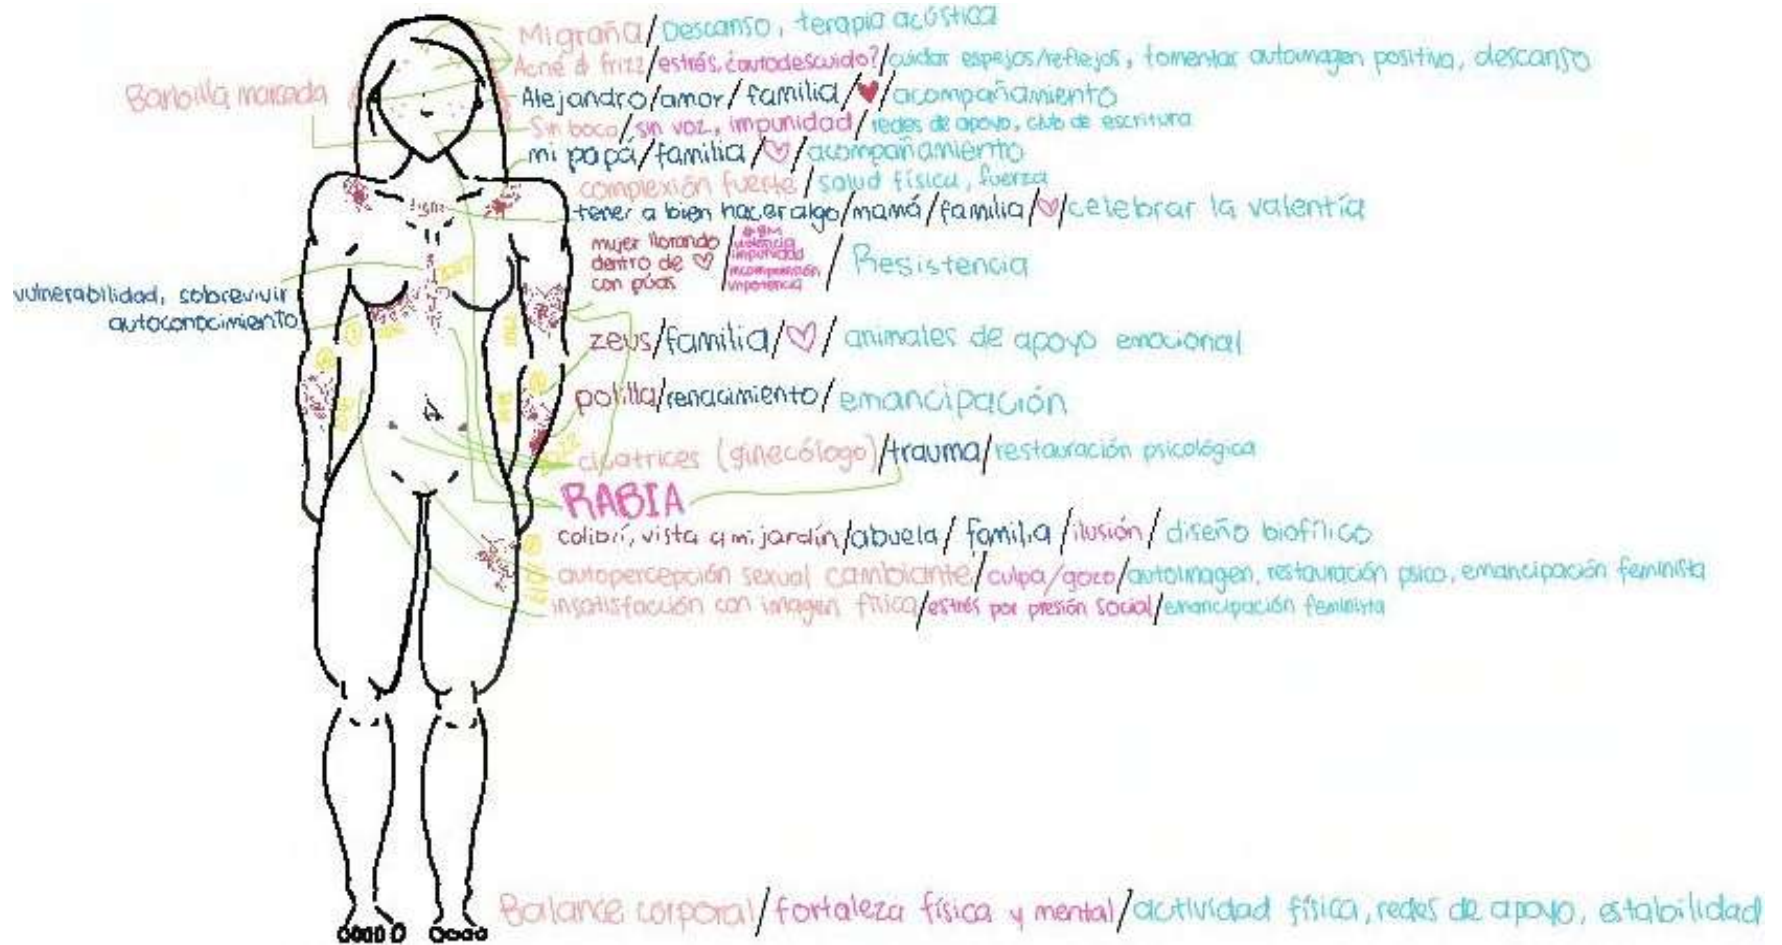 Migraña/Descanso, terapia acústica
Acné & frizz/estrés, ¿autodescuido?/cuidar espejos/reflejos, fomentar autoimagen positiva, descanso
Barbilla marcada
Alejandro/amor/familia/♥/acompañamiento
Sin boca/sin voz, impunidad/redes de apoyo, club de escritura
mi papá/familia/♡/acompañamiento
complexión fuerte/salud física, fuerza
tener a bien hacer algo/mamá/familia/♡/celebrar la valentía
mujer llorando
dentro de ♡
con púas
/violencia
impunidad
incomprensión
impotencia
/Resistencia
vulnerabilidad, sobrevivir
autoconocimiento
zeus/familia/♡/animales de apoyo emocional
polilla/renacimiento/emancipación
cicatrices (ginecólogo)/trauma/restauración psicológica
RABIA
colibrí, vista a mi jardín/abuela/familia/ilusión/diseño biofílico
autopercepción sexual cambiante/culpa/gozo/autoimagen, restauración psico, emancipación feminista
insatisfacción con imagen física/estrés por presión social/emancipación feminista
Balance corporal/fortaleza física y mental/actividad física, redes de apoyo, estabilidad